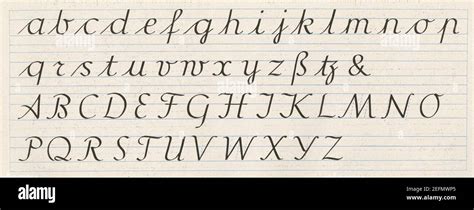 a b c d e f g h i j k l m n o p
q r s t u v w x y z ß tz &
A B C D E F G H I J K L M N O
P Q R S T U V W X Y Z
alamy
Image ID: 2EFMWP5
www.alamy.com